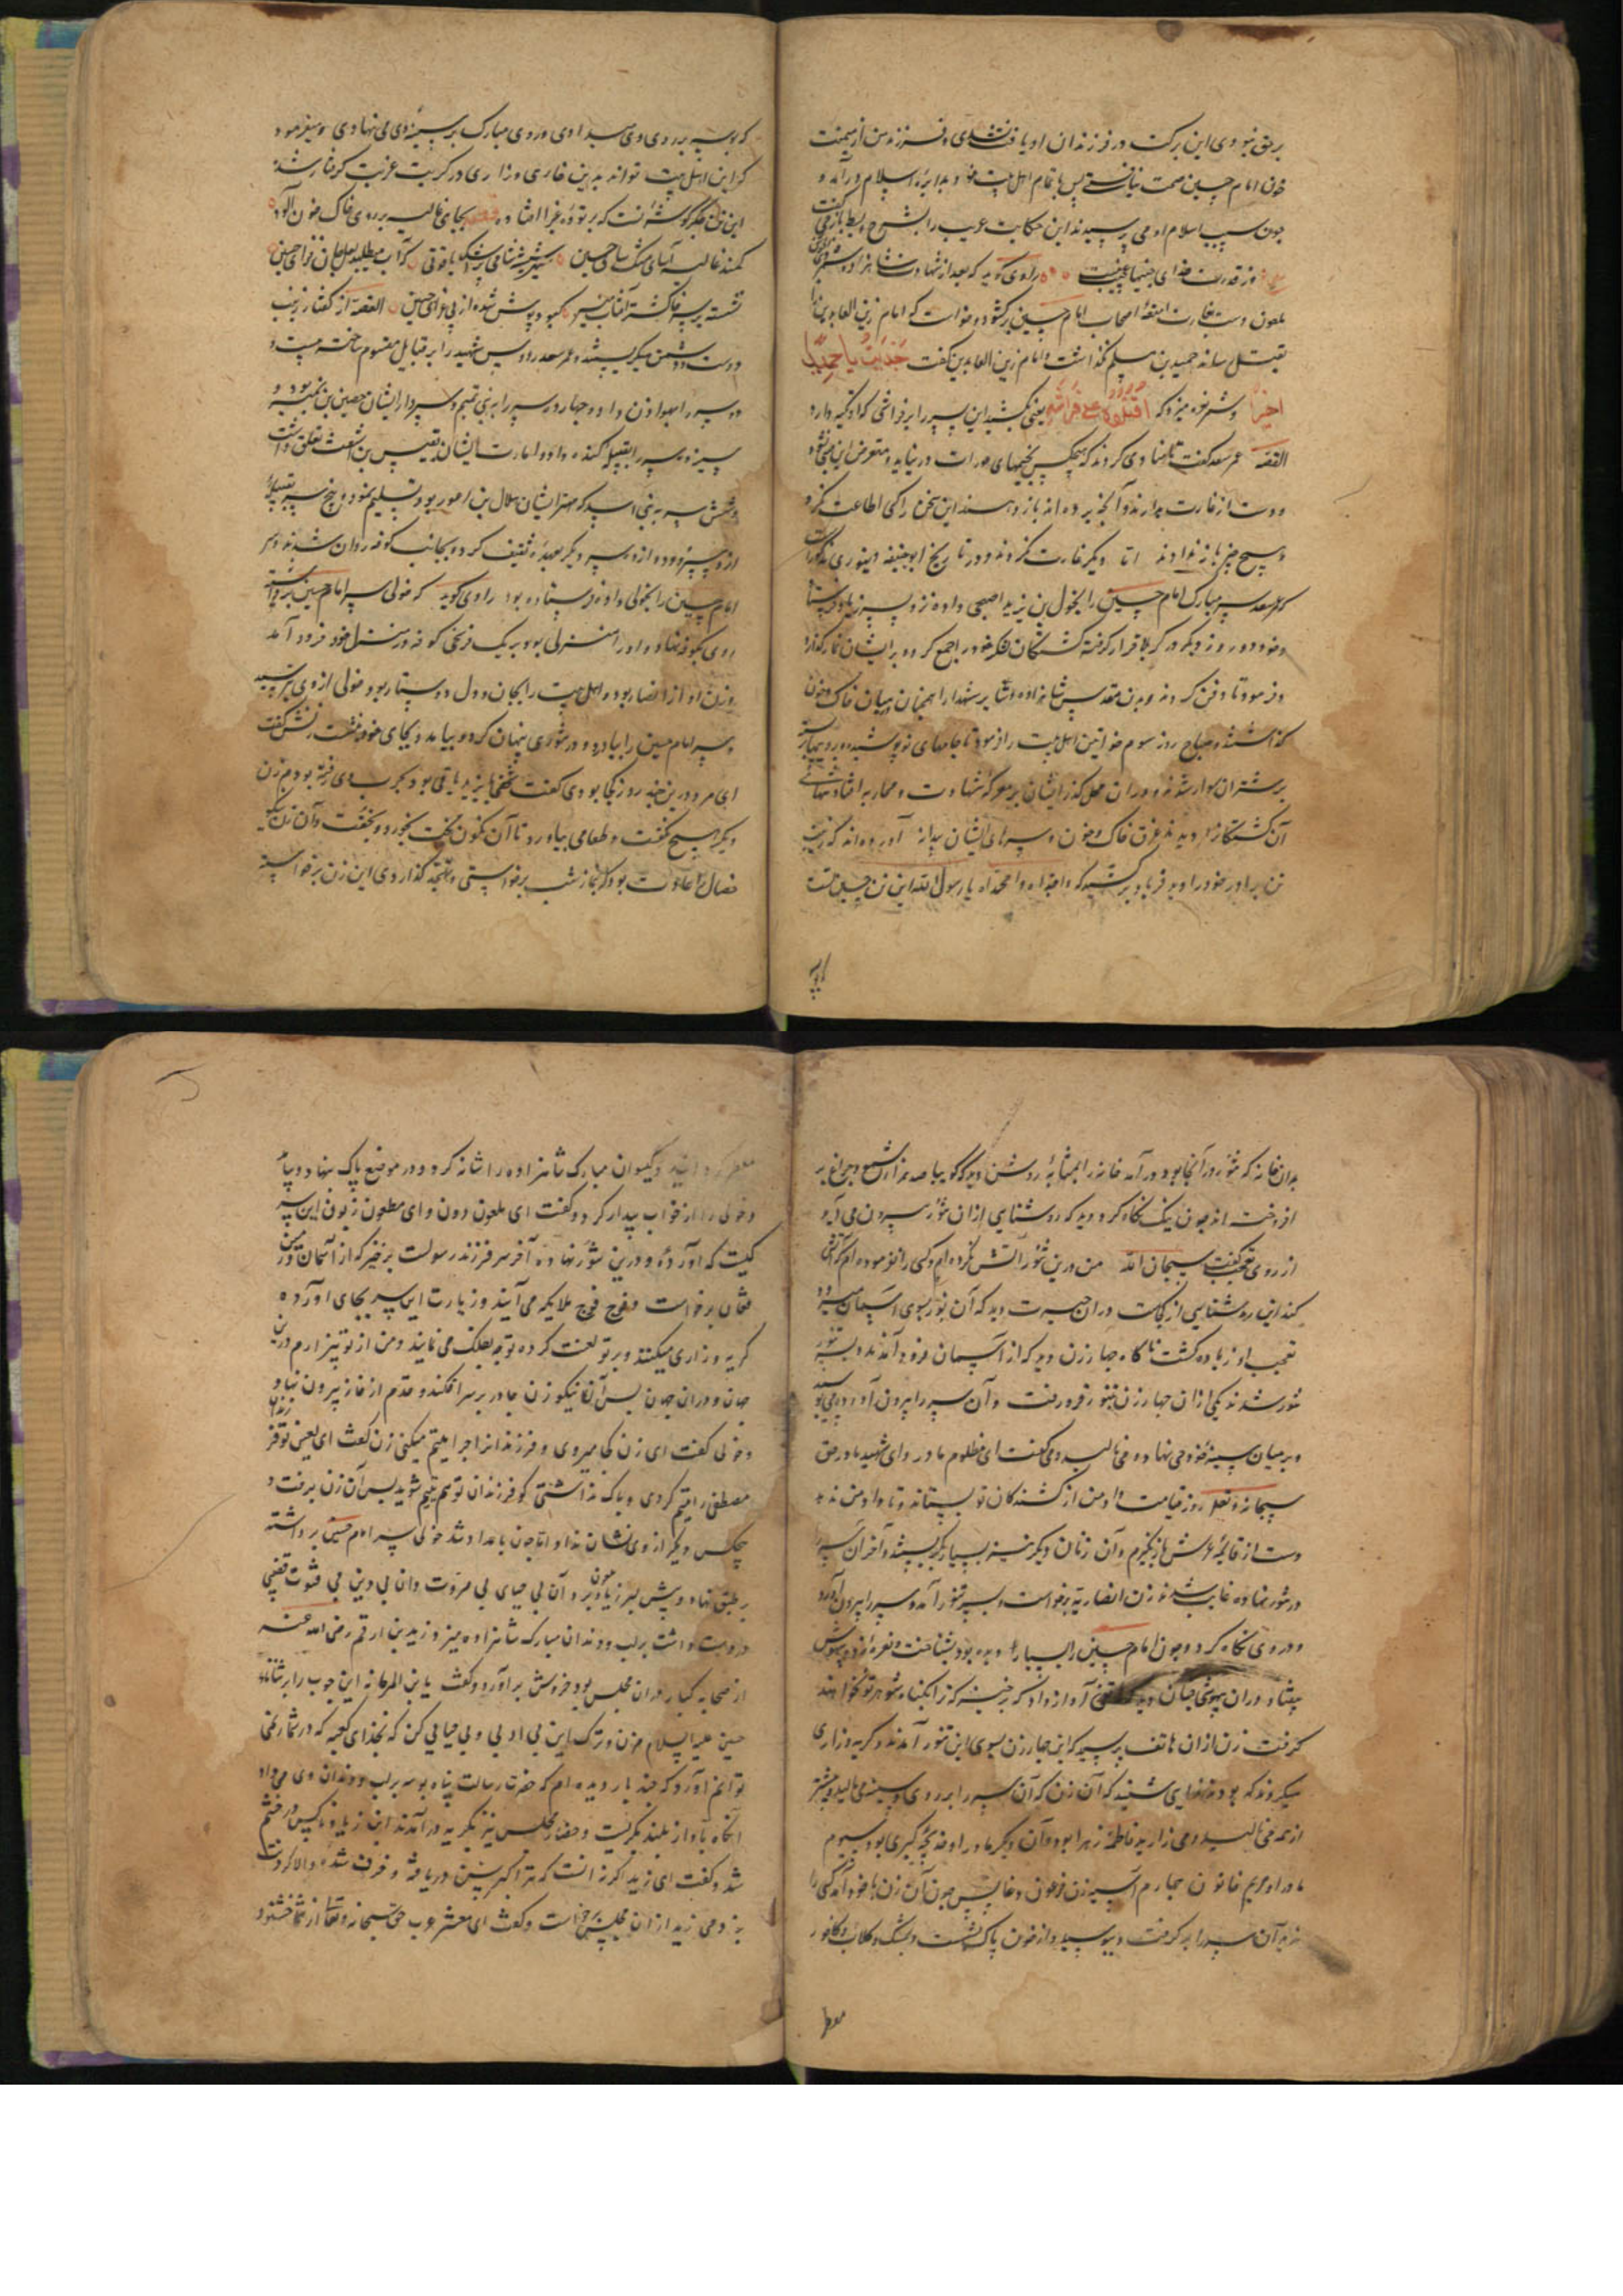 بر حق نبودی این برکت در فرزندان او یافت نشدی و فرزند من از میمنت
خون امام حسین صحت نیافتی پس با تمام اهل بیت خود بدایره اسلام درآمد و
چون سبب اسلام او می پرسیدند این حکایت غریب را بشرح و بسط باز می گفت
وز قدرت خدای جنینها عجیب نیست راوی گوید که بعد از شهادت شاهزاده شمر
ملعون دست بغارت امتعه اصحاب امام حسین برکشود و خواست که امام زین العابدین را
بقتل رساند حمید بن مسلم نگذاشت و امام زین العابدین گفت جزیت یا حمید
خیرا و شمر نعره میزد که اقتلوه علی فراشه یعنی بکشید این پسر را بر فراشی که او تکیه دارد
القصه عمر سعد گفت تا منادی کردند که هیچکس بخیمهای عورات درنیاید و متعرض این نشود
و دست از غارت بدارند و آنچه برده اند باز دهند این سخن را کسی اطاعت نکرد
و هیچ چیز باز ندادند اما دیگر غارت نکردند و در تاریخ ابوحنیفه دینوری مذکور است
که عمر سعد سر مبارک امام حسین را بخولی بن یزید اصبحی داده نزد پسر زیاد فرستاد
و خود دو روز دیگر در کربلا قرار گرفته کشتگان لشکر خود را جمع کرد و بر ایشان نماز گذارد
و فرمود تا دفن کردند و بدن مقدس شاهزاده و سایر شهدا را همچنان در میان خاک و خون
گذاشتند و صباح روز سوم خواتین اهل بیت را فرمود تا جامهای نو پوشیده
بر شتران سوار شدند و در آن محل گذر ایشان بر معرکه شهادت و محاربه افتاد تنهای
آن کشتگان را دیدند غرق خاک و خون و سرهای ایشان بدانه آورده اند که زینب
تن برادر خود را دید فریاد برکشید که وا جداه وا محمداه یا رسول الله این تن حسین تست
که بوسه بر روی وی میدادی و روی مبارک بر سینه وی می نهادی و میفرمودی
که این اهل بیت تواند بدین خاری و زاری در کربت غربت گرفتار شده
این تن جگرگوشه تست که بر توده غبرا افتاده بجای غالیه بر روی خاک خون آلود
نشسته بر سر خاکستر آفتاب منیر کبود پوش شده از پی عزای حسین القصه از گفتار زینب
دوست و دشمن میگریستند و عمر سعد رؤس شهید را بر قبایل مقسوم ساخته بیست و
دو سر را بهوازن داد و چهارده سر را به بنی تمیم و سردار ایشان حصین بن نمیر بود و
سیزده سر را بقبیله کنده داد و امارت ایشان بقیس بن اشعث تعلق داشت
و شش سر به بنی اسد که مهتر ایشان هلال بن اعور بود تسلیم نمود و پنج سر بقبیله
ازد سپرد و دوازده سر دیگر بعهده ثقیف کرد و بجانب کوفه روان شدند و سر
امام حسین را بخولی داده فرستاده بود راوی گوید که خولی سر امام حسین برداشته
روی بکوفه نهاد و او را منزلی بود بر یک فرسخی کوفه در منزل خود فرود آمد
و زن او از انصار بود و اهل بیت را بجان و دل دوستار بود خولی از وی بترسید
و سر امام حسین را بیاورد و در تنوری پنهان کرد و بیامد و بجای خود بنشست زنش گفت
ای مرد درین چند روز کجا بودی گفت شخصی با یزید یاغی بود بحرب وی رفته بودم زن
دیگر هیچ نگفت و طعامی بیاورد تا آن ملعون بخورد و بخفت و آن زن نیکو
خصال را عادت بود که نماز شب برخواستی و تهجد گذاردی این زن برخواسته
بدان خانه که تنور در آنجا بود درآمد خانه را بمثابه روشن دید که گوییا صد هزاران شمع و چراغ بر
افروخته اند چون نیک نگاه کرد دید که روشنایی از آن تنور بیرون می آید
از روی تعجب گفت سبحان الله من درین تنور آتش نکرده ام و کسی را نفرموده ام که آتش
کند این روشنایی از کجاست در آن حیرت دید که آن نور بسوی آسمان میرود
تعجب او زیاده گشت ناگاه چهار زن دید که از آسمان فرود آمدند و بسر تنور
تنور شدند یکی از آن چهار زن بتنور فرو رفت و آن سر را بیرون آورد و می بوسید
و بر میان سینه خود می نهاد و می نالید و می گفت ای مظلوم مادر و ای شهید مادر حق
سبحانه و تعالی روز قیامت داد من از کشندگان تو بستاند و تا داد من ندهد
دست از قایمه عرش باز نگیرم و آن زنان دیگر نیز بسیار بگریستند و آخر آن سر را
در تنور نهاده غایب شدند زن انصاریه برخواست و بسر تنور آمد و سر را بیرون آورد
و در وی نگاه کرد و چون امام حسین را بسیار دیده بود بشناخت و نعره زد و بیهوش
بیفتاد و در آن بیهوشی چنان دید که هاتفی آواز داد که برخیز که ترا بگناه شوهر تو نخواهند
گرفت زن از آن هاتف پرسید که این چهار زن بسوی این تنور آمدند و گریه و زاری
میکردند که بودند ندایی شنید که آن زن که آن سر را بر روی و سینه می مالید و بیشتر
از همه می نالید و می زارید فاطمه زهرا بود و آن دیگر مادر او خدیجه کبری بود سیوم
مادر او مریم خاتون چهارم آسیه زن فرعون و غایب چون آن زن با خود آمد کسی را
ندید آن سر را برگرفت و ببوسید و از خون پاک بشست و بمشک و گلاب و کافور
معطر
معطر گردانید و گیسوان مبارک شاهزاده را شانه کرد و در موضع پاک بنهاد و بیامد
و خولی را از خواب بیدار کرد و گفت ای ملعون دون و ای مطعون زبون این سر
کیست که آورده و درین تنور نهاده آخر سر فرزند رسولست برخیز که از آسمان و زمین
فغان برخواست و فوج فوج ملایکه می آیند و زیارت این سر بجای آورده
گریه و زاری میکنند و بر تو لعنت کرده توجه بفلک می نمایند و من از تو بیزارم درین
جهان و در آن جهان پس آن نیکو زن چادر بر سر افکند و قدم از خانه بیرون نهاد
خولی گفت ای زن کجا میروی و فرزندانرا چرا یتیم میکنی زن گفت ای لعین تو فرزندان
مصطفی را یتیم کردی و باک نداشتی گو فرزندان تو هم یتیم شوید پس آن زن برفت و
هیچکس دیگر از وی نشان نداد اما چون بامداد شد خولی سر امام حسین برداشته
بر طبق نهاد و پیش پسر زیاد ملعون برد و آن بی حیای بی مروت و آن بی دین بی فتوت قضیبی
در دست داشت بر لب و دندان مبارک شاهزاده میزد زید بن ارقم رضی الله عنه
از صحابه کبار در آن مجلس بود خروش برآورد و گفت یا ابن المرجانه این چوب را بر ثنایای
حسین علیه السلام مزن و ترک این بی ادبی و بی حیایی کن که بخدای کعبه که در شمار نمی
توانم آورد که چند بار دیده ام که حضرت رسالت پناه بوسه بر لب و دندان وی می داد
آنگاه بآواز بلند بگریست و حضار مجلس نیز بگریه درآمدند ابن زیاد ناکس در خشم
شد و گفت ای زید اگر نه آنست که ترا کبر سن دریافته و خرف شده والا گردنت
بزدمی زید از آن مجلس برخواست و گفت ای معشر عرب حق سبحانه و تعالی از شما خشنود